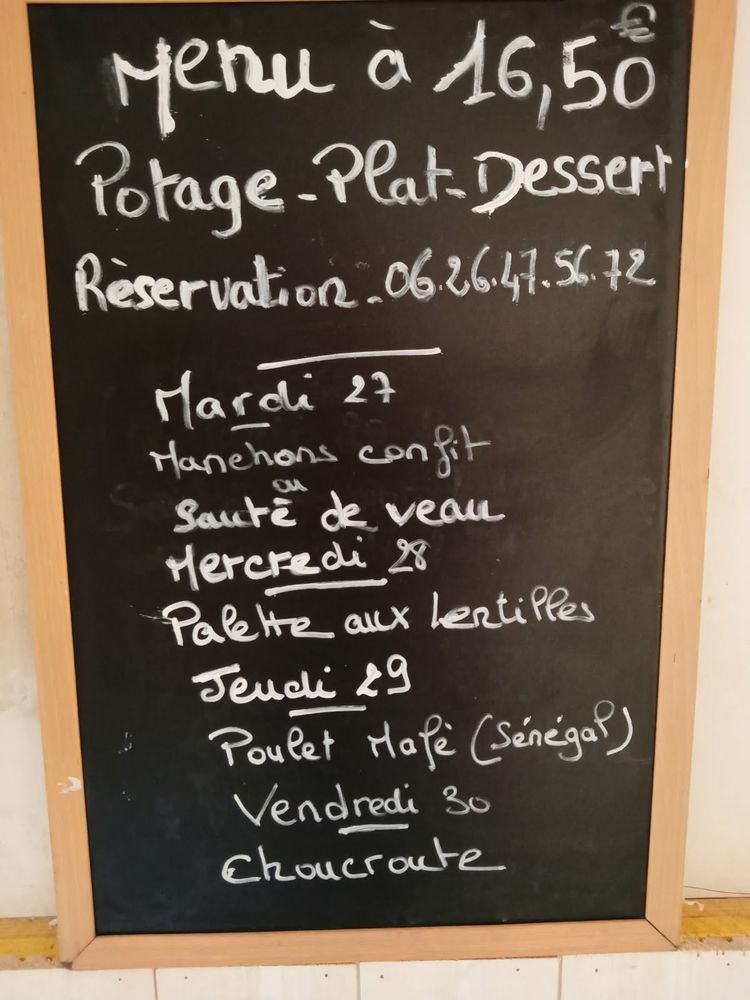 Menu à 16,50€
Potage - Plat - Dessert
Rèservation - 06.26.47.56.72
Mardi 27
Manchons confit
ou
Sauté de veau
Mercredi 28
Palette aux lentilles
Jeudi 29
Poulet Mafè (Sénégal)
Vendredi 30
Choucroute